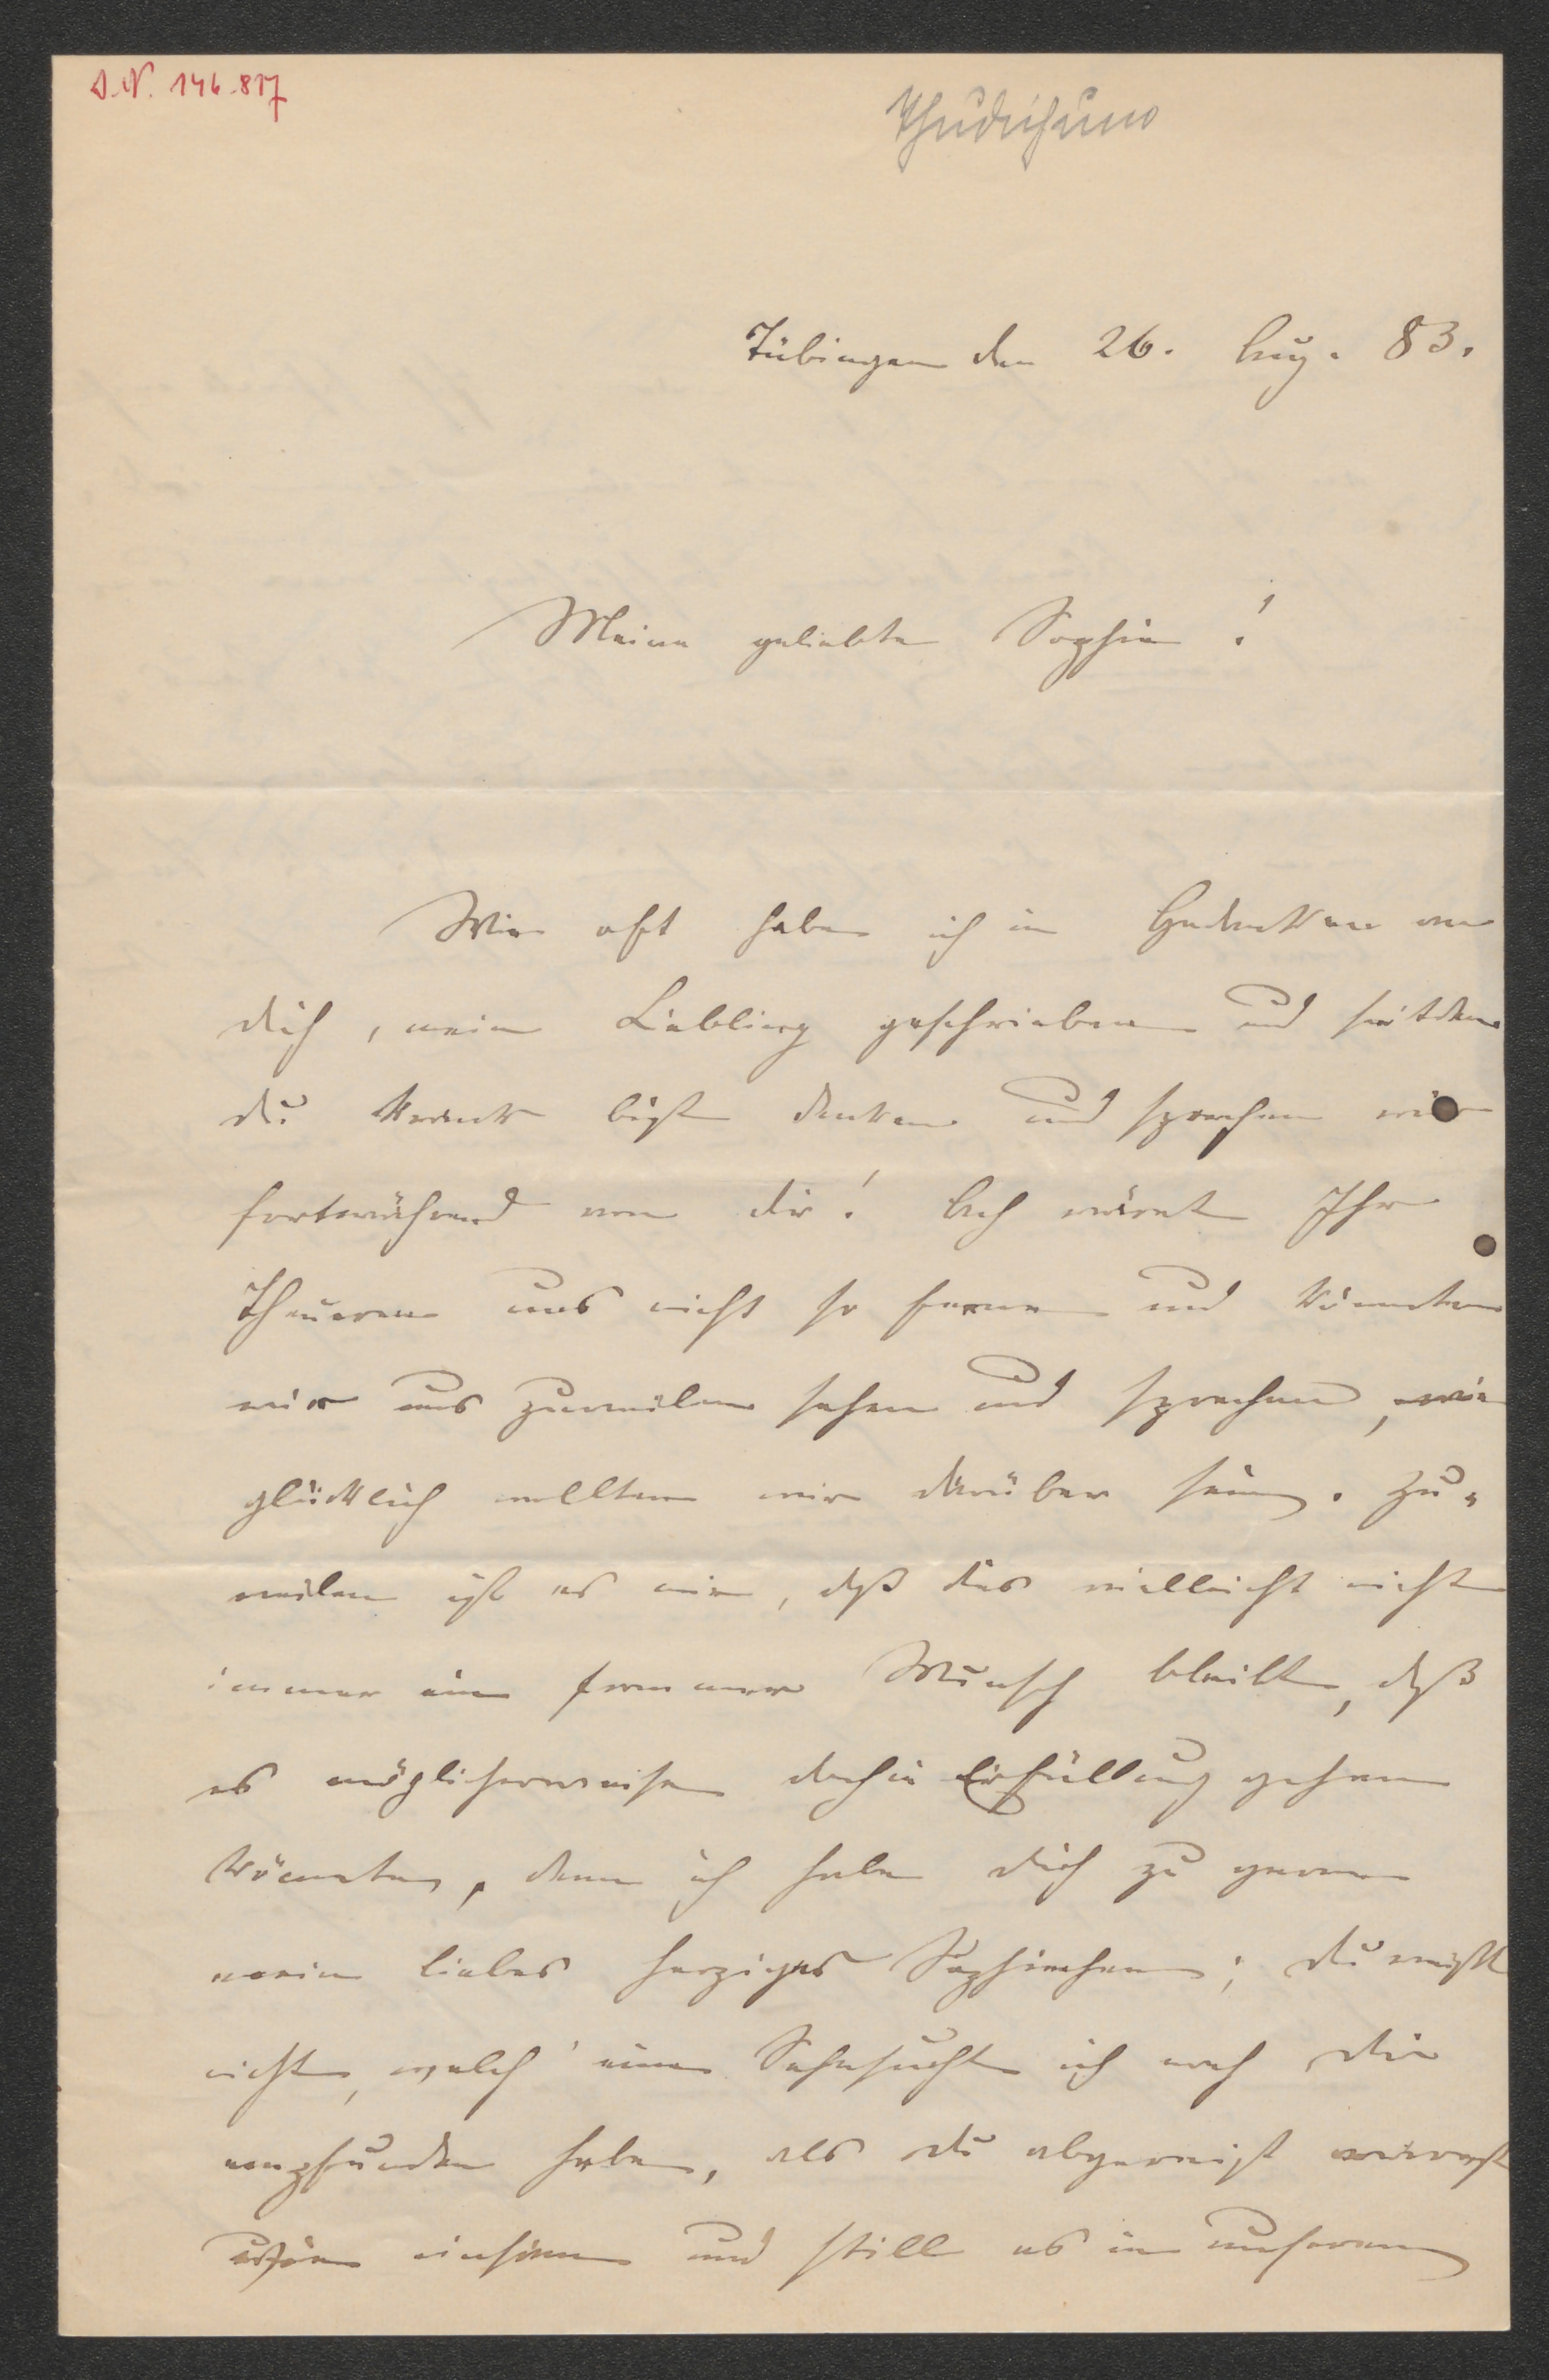 I.N. 146.817
Thudichum
Tübingen den 26. Aug. 83.
Meine geliebte Sophie!
Wie oft habe ich in Gedanken an
dich, mein Liebling geschrieben und seitdem
du krank bist denken und sprechen wir
fortwährend von dir! Ach wäret Ihr
Theueren uns nicht so ferne und könnten
wir uns zuweilen sehen und sprechen, wie
glücklich wollten wir darüber sein. Zu-
weilen ist es mir, daß dies vielleicht nicht
immer ein frommer Wunsch bleibt, daß
es möglicherweise doch in Erfüllung gehen
könnte, denn ich habe dich zu gerne
mein liebes herziges Sophiechen; du weißt
nicht, welch' eine Sehnsucht ich nach dir
empfunden habe, als du abgereist warst
einsam und still es in unserem